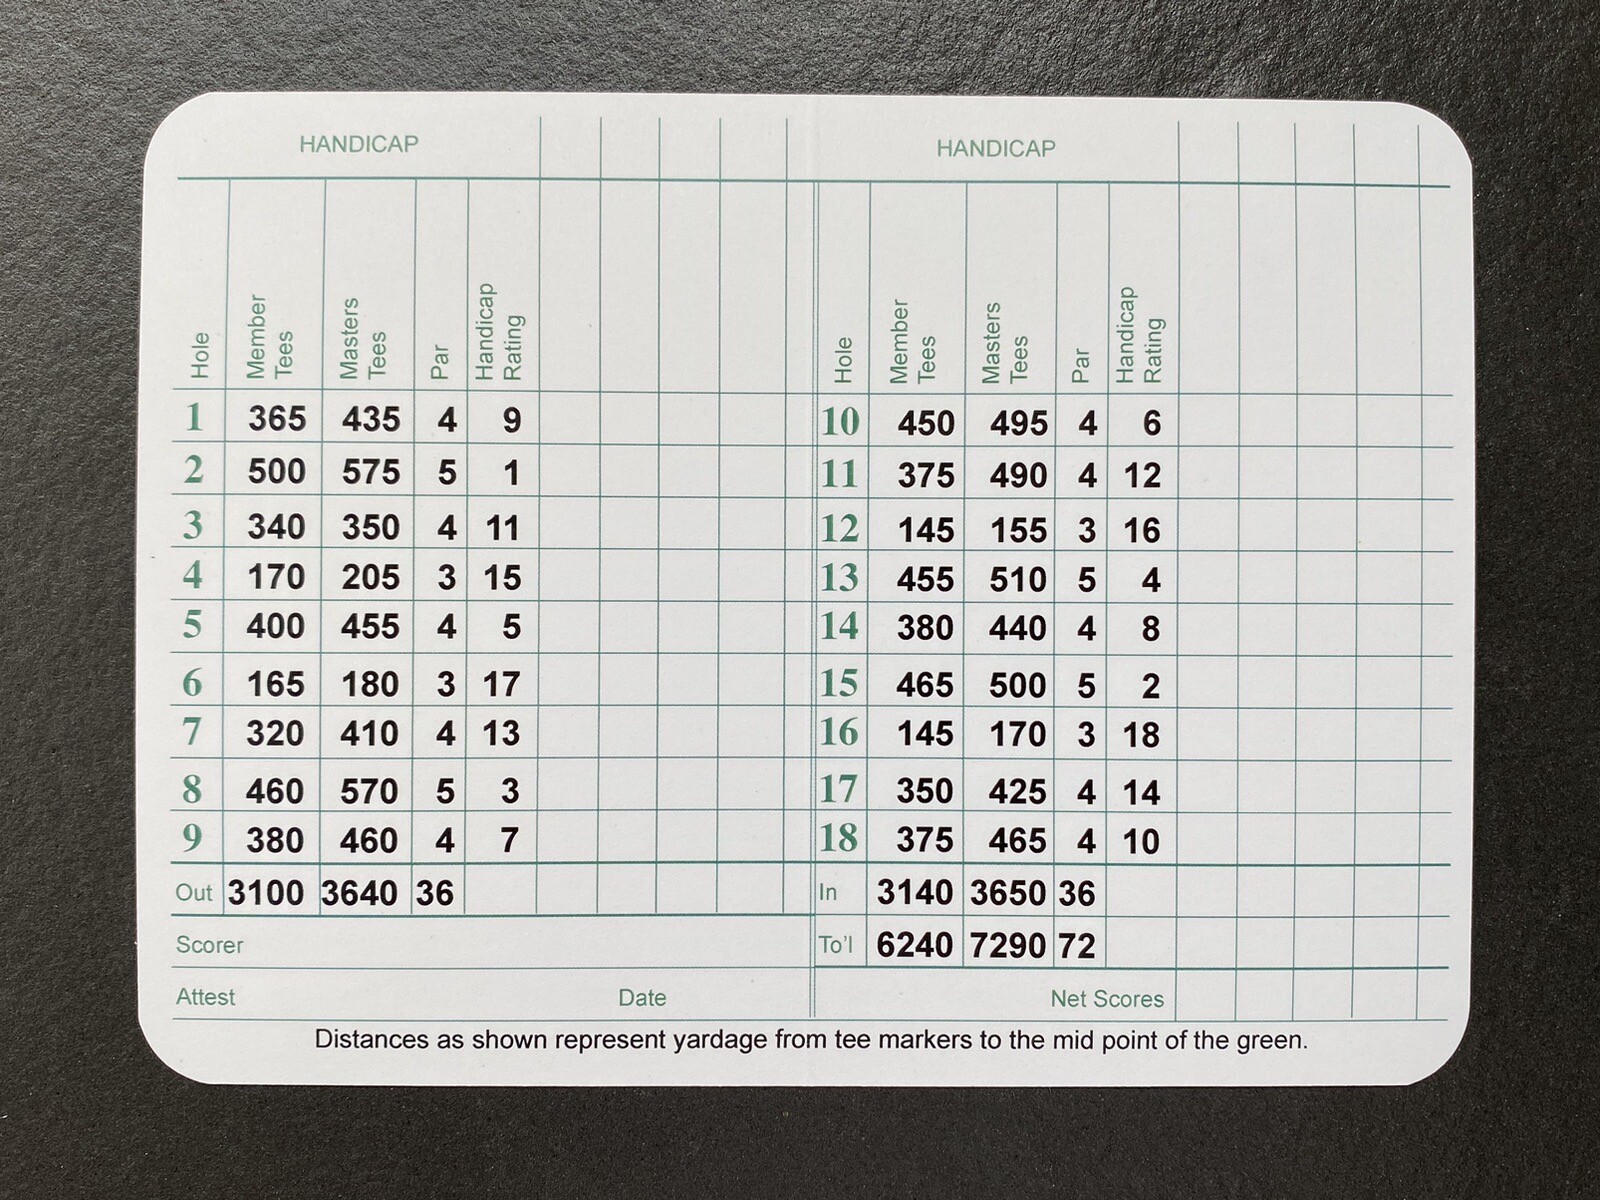 HANDICAP
Hole Member Tees Masters Tees Par Handicap Rating
1 365 435 4 9
2 500 575 5 1
3 340 350 4 11
4 170 205 3 15
5 400 455 4 5
6 165 180 3 17
7 320 410 4 13
8 460 570 5 3
9 380 460 4 7
Out 3100 3640 36
Scorer
Attest Date
HANDICAP
Hole Member Tees Masters Tees Par Handicap Rating
10 450 495 4 6
11 375 490 4 12
12 145 155 3 16
13 455 510 5 4
14 380 440 4 8
15 465 500 5 2
16 145 170 3 18
17 350 425 4 14
18 375 465 4 10
In 3140 3650 36
To'l 6240 7290 72
Net Scores
Distances as shown represent yardage from tee markers to the mid point of the green.